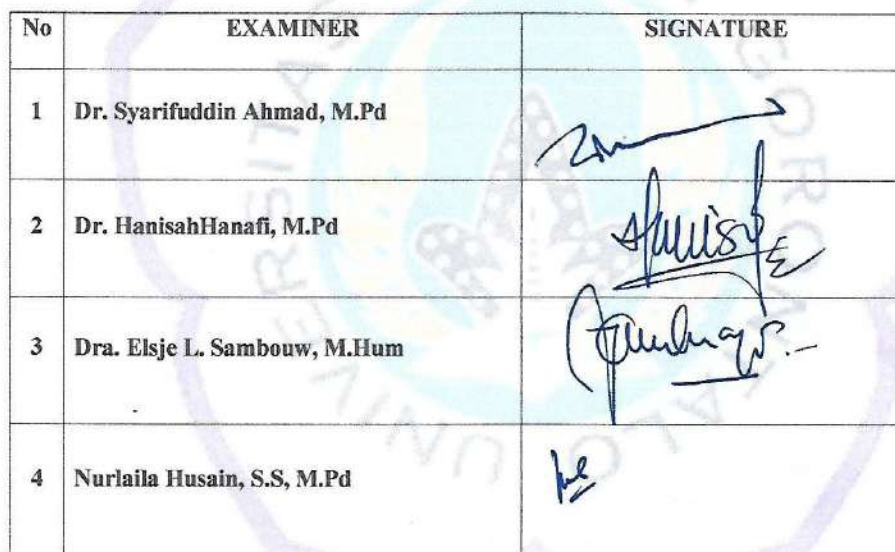 No EXAMINER SIGNATURE
1 Dr. Syarifuddin Ahmad, M.Pd
2 Dr. HanisahHanafi, M.Pd
3 Dra. Elsje L. Sambouw, M.Hum
4 Nurlaila Husain, S.S, M.Pd
UNIVERSITAS
GORONTALO